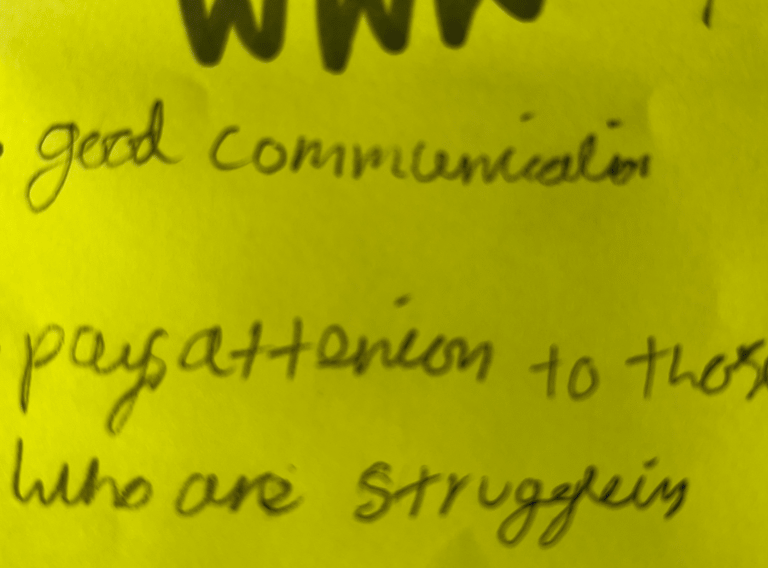 WWW
good communication
pays attenion to those
who are struggleing